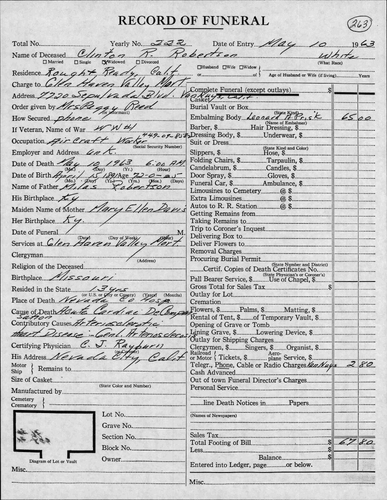 RECORD OF FUNERAL
263
Total No. Yearly No. 222 Date of Entry May 10 1963
Name of Deceased Clinton R. Robertson White
Married Single Widowed Divorced Husband Widow (What Race)
Residence Rough & Ready, Calif of Age of Husband or Wife (if living) Years
Charge to Glen Haven Valley Mort.
Address 7700 Sepulveda Blvd. Van Nuys, Calif
Order given by Mrs Peggy Reed
How Secured phone
If Veteran, Name of War WW I
Occupation Aircraft Worker
(Social Security Number)
Employer and Address unk.
Date of Death May 10, 1963 6:00 AM
(Mo.) (Day) (Yr.) (Hour)
Date of Birth April 15
(Mo.) (Day) (Yr.) (Yrs.) (Mos.) (Days)
Name of Father Milas Robertson
His Birthplace Ky
Maiden Name of Mother Mary Ellen Davis
Her Birthplace Ky.
Date of Funeral
(Day) (Date) (Hour)
Services at Glen Haven Valley Mort.
Clergyman
(Address)
Religion of the Deceased
Birthplace Missouri
Resided in the State 13 yrs
(or U.S. or City or County) (Years) (Months)
Place of Death Nevada Co Hosp
Cause of Death Acute Cardiac Decompensation
Contributory Causes Arteriosclerotic
Heart Disease
Certifying Physician C. J. Rayburn
His Address Nevada City, Calif
Motor
Ship
Remains to
Size of Casket
(State Color and Number)
Manufactured by
Cemetery
Crematory
Lot No.
Grave No.
Section No.
Block No.
Owner
Diagram of Lot or Vault
Misc.
Complete Funeral (except outlays) $
Casket
Burial Vault or Box
(State Kind)
Embalming Body 65 00
(Name of Embalmer)
Barber, $ Hair Dressing, $
Dressing Body, $ Underwear, $
Suit or Dress
(State Kind and Color)
Slippers, $ Hose, $
Folding Chairs, $ Tarpaulin, $
Candelabrum, $ Candles, $
Door Spray, $ Gloves, $
Funeral Car, $ Ambulance, $
Limousines to Cemetery @ $
Extra Limousines @ $
Autos to R. R. Station @ $
Getting Remains from
Taking Remains to
Trip to Coroner's Inquest
Delivering Box to
Deliver Flowers to
Removal Charges
Procuring Burial Permit
(State Number and District)
Certif. Copies of Death Certificates No.
(State Person's or Coroner's)
Pall Bearer Service, $ Use of Chapel, $
Gross Total for Sales Tax $
Outlay for Lot
Cremation
Flowers, $ Palms, $ Matting, $
Rental of Tent, $ of Temporary Vault, $
Opening of Grave or Tomb
Lining Grave, $ Lowering Device, $
Outlay for Shipping Charges
Clergymen, $ Singers, $ Organist, $
Railroad or Motor Tickets, $ Aero-plane Service, $
Telegr., Phone, Cable or Radio Charges Van Nuys 2 80
Cash Advanced
Out of town Funeral Director's Charges
Personal Service
line Death Notices in Papers
(Names of Newspapers)
Sales Tax
Total Footing of Bill $ 67 80
Less $
Balance $
Entered into Ledger, page or below.
Misc.